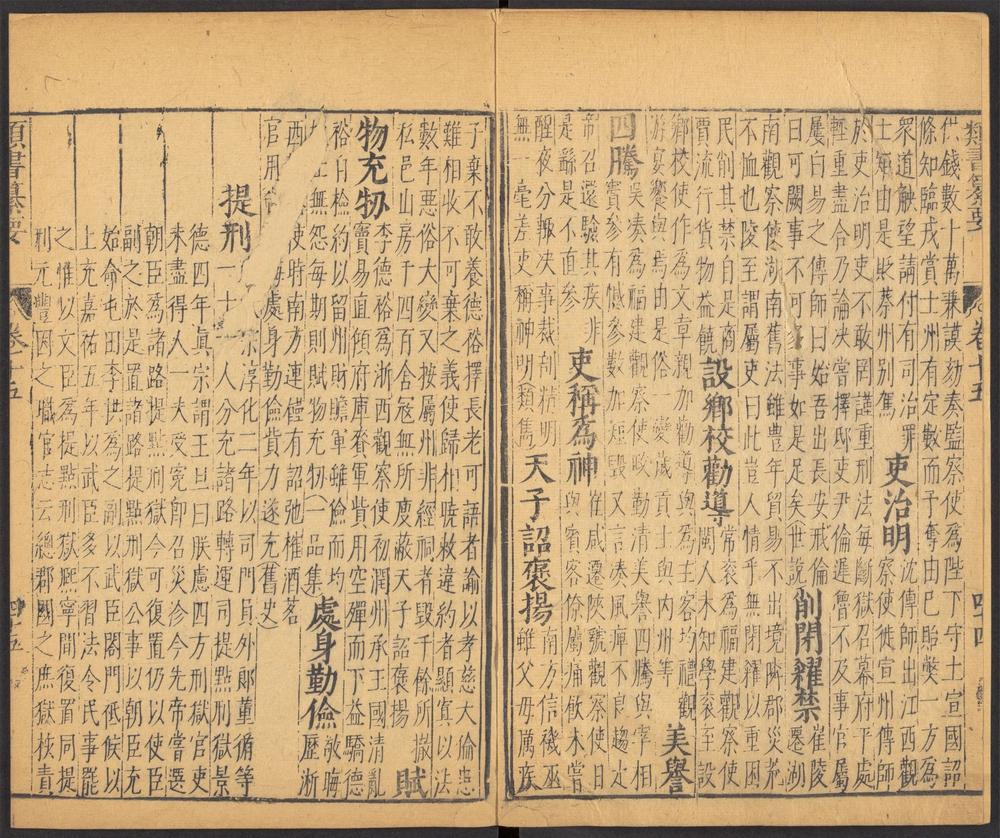 類書纂要 卷十五 四十四
什錢數十萬兼謨劾奏監察使爲陛下守土宣國詔
條知臨戎賞士州有定數而予奪由巳貽弊一方爲
衆道觖望請付有司治罪
士矩由是貶蔡州別駕
吏治明
沈傳師出江西觀
察使徙宣州傳師
於吏治明吏不敢罔謹重刑法每斷獄召幕府平處
輕重盡合乃論决嘗擇邸吏尹倫遲魯不及事官屬
屢白易之傳師曰始吾出長安戒倫
曰可闕事不可多事如是足矣世說
削閉糴禁
崔陵
遷湖
南觀察使湖南舊法雖豐年貿易不出境鄰郡災荒
不恤也陵至謂屬吏曰此豈人情乎無閉糴以重困
民削其禁自是商
賈流行貨物益饒
設鄉校勸導
常袞爲福建觀察使
閩人未知學袞至設
鄉校使作爲文章親加勸導與爲主客均禮觀
游宴饗與焉由是俗一變歲貢士與內州等
美譽
四騰
吳湊爲福建觀察使政勤清美譽四騰與宰相
竇參有憾參數加短毁又言湊風痺不良趨走
帝召還驗其疾非
是繇是不直參
吏稱爲神
崔咸遷陝虢觀察使日
與賓客僚屬痛飲未嘗
醒夜分輒决事裁剖精明
無一毫差吏稱神明類雋
天子詔褒揚
南方信禨巫
雖父母厲疾
子棄不敢養德裕擇長老可語者諭以孝慈大倫患
難相收不可棄之義使歸相曉敕違約者顯寘以法
數年惡俗大變又按屬州非經祠者毀千餘所撤
私邑山房千四百舍寇無所廋蔽天子詔褒揚
賦
物充牣
李德裕爲浙西觀察使初潤州承王國清亂
竇易直傾府庫賚軍貲用空殫而下益驕德
裕自檢約以留州財贍軍雖儉而均
士無怨每期則賦物充牣一品集
處身勤儉
敬晦
歷浙
西使時南方連饉有詔弛榷酒茗
官用晦處身勤儉貲力遂充舊史
提刑
宋淳化二年以司門員外郎董循等
一十人分充諸路轉運司提點刑獄景
德四年眞宗謂王旦曰朕慮四方刑獄官吏
未盡得人一夫受寃卽召災沴今先帝嘗選
朝臣爲諸路提點刑獄今可復置仍以使臣
副之於是置諸路提點刑獄公事以朝臣充
始命屯田李拱爲之副以武臣閤門祗候以
上充嘉祐五年以武臣多不習法令民事罷
之惟以文臣爲提點刑獄熙寧間復置同提
刑元豐因之職官志云總郡國之庶獄核責
類書纂要 卷十五 四十五